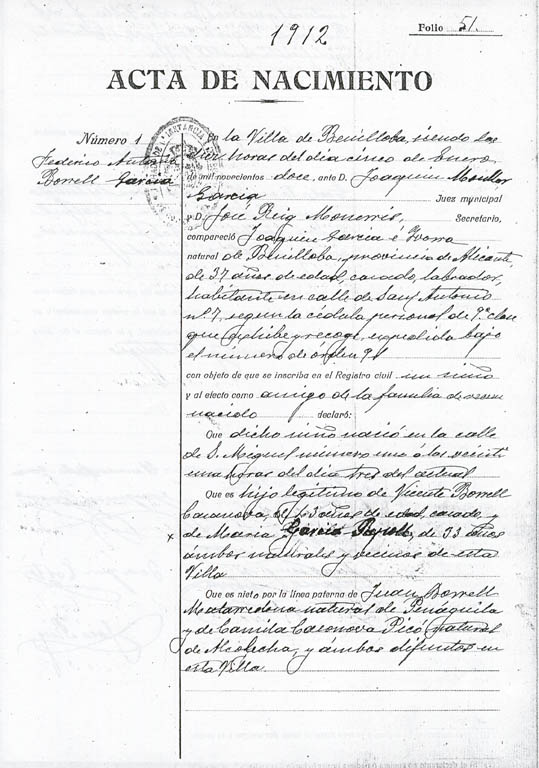 1912
Folio 51.
ACTA DE NACIMIENTO
Número 1
Federico Antonio
Borrell García
En la Villa de Benilloba, siendo las
diez horas del día cinco de Enero
de mil novecientos doce, ante D. Joaquin Monllor
García Juez municipal
y D. José Reig Monerris, Secretario,
compareció Joaquin García é Ivorra
natural de Benilloba, provincia de Alicante
de 37 años de edad, casado, labrador,
habitante en calle de San Antonio
nº 7, segun la cédula personal de 9ª clase
que exhibe y recoge, expedida bajo
el número de orden 91
con objeto de que se inscriba en el Registro civil un niño
y al efecto como amigo de la familia de recien
nacido declaró:
Que dicho niño nació en la calle
de S. Miguel número uno á las veinti
una horas del dia tres del actual
Que es hijo legitimo de Vicente Borrell
Casanova, de 43 años de edad, casado y
x de María García de 33 años
ambos naturales y vecinos de esta
Villa
Que es nieto por la línea paterna de Juan Borrell
Matarredona natural de Penaguila
y de Camila Casanova Picó natural
de Alcolecha, y ambos difuntos en
esta Villa